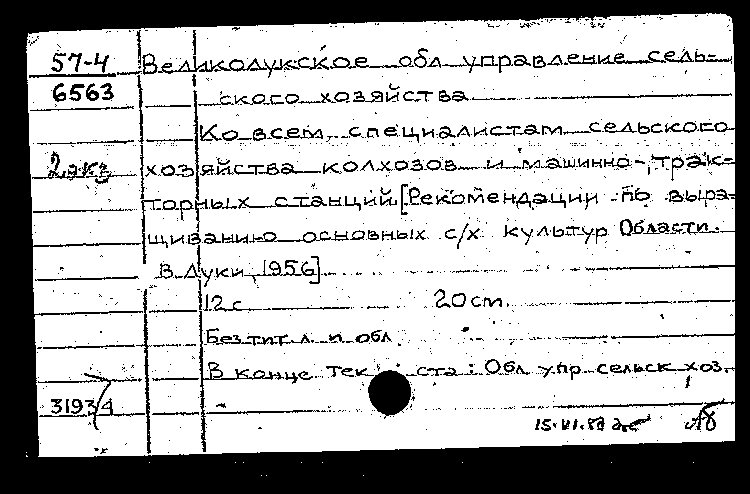 57-4 Великолукское обл управление сель-
6563 ского хозяйства
Ко всем специалистам сельского
2 экз хозяйства колхозов и машинно-трак-
торных станций [Рекомендации по выра-
щиванию основных с/х культур Области.
В Луки, 1956]
12 с 20 cm.
Без тит л и обл
В конце текста: Обл упр сельск хоз.
31934
15.VI.57